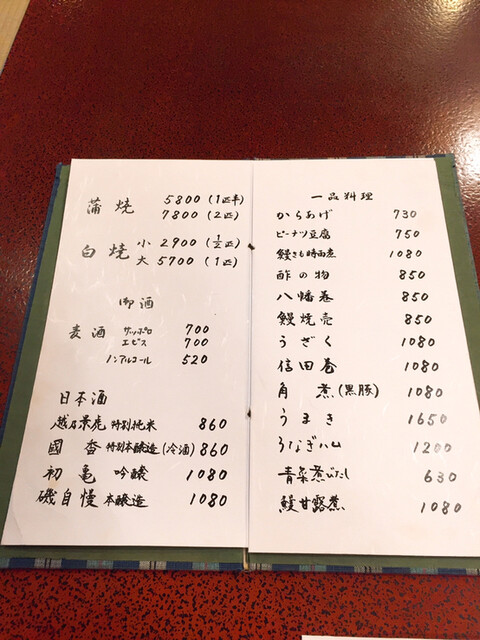 蒲焼 5800 (1匹半)
7800 (2匹)
白焼 小 2900 (1/2匹)
大 5700 (1匹)
御酒
麦酒 サッポロ 700
エビス 700
ノンアルコール 520
日本酒
越乃景虎 特別純米 860
國香 特別本醸造 (冷酒) 860
初亀 吟醸 1080
磯自慢 本醸造 1080
一品料理
からあげ 730
ピーナツ豆腐 750
鰻きも時雨煮 1080
酢の物 850
八幡巻 850
鰻焼売 850
うざく 1080
信田巻 1080
角煮 (黒豚) 1080
うまき 1650
うなぎハム 1200
青菜煮びたし 630
鰻甘露煮 1080